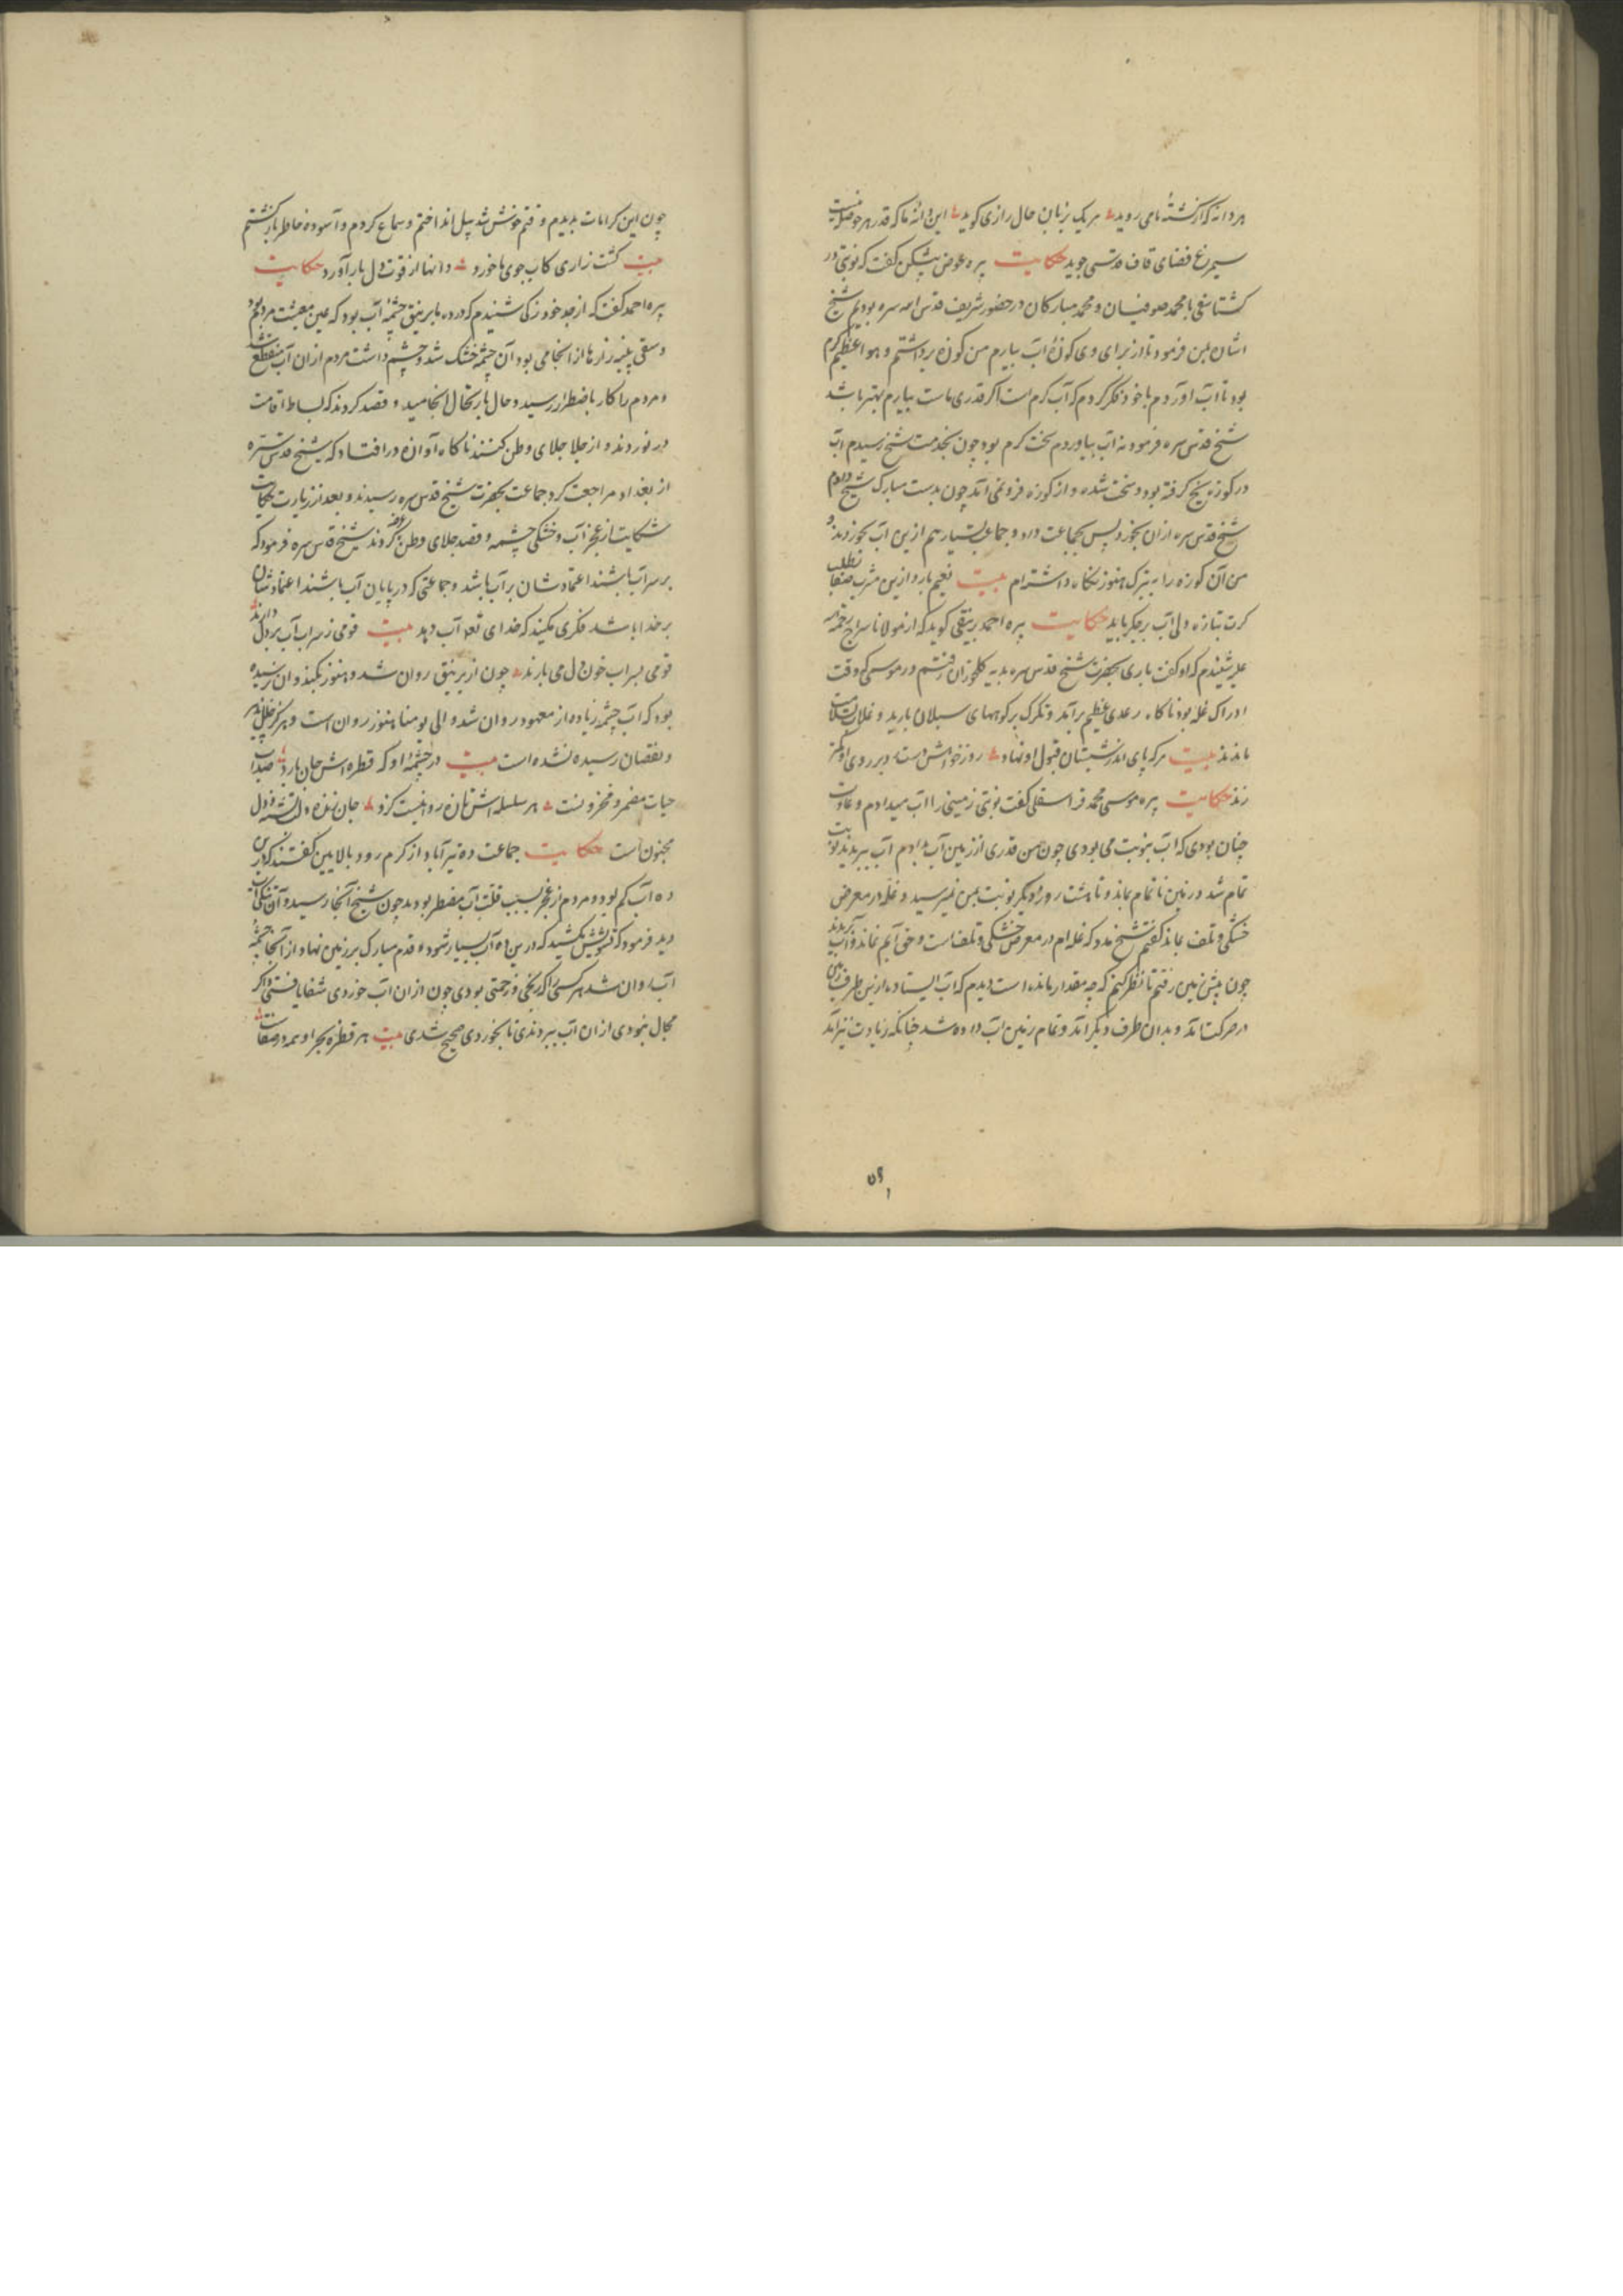 هر دانه که از کشته ما می روید هر یک بزبان حال رازی کوید این دانه ما که قدر هر حوصله نیست
سیمرغ فضای قاف قدسی جوید حکایت پیره عوض پشکین کفت که نوبتی در
کشتاسفی با محمد صوفیان و محمد مبارکان در حضور شریف قدس الله سره بودیم شیخ
اشاره بمن فرمود تا از برای وی کوزهٔ آب بیارم من کوزه برداشتم و هوا عظیم کرم
بود تا آب آوردم با خود فکر کردم که آب کرم است اکر قدری ماست بیارم بهتر باشد
شیخ قدس سره فرمود نه آب بیاوردم سخت کرم بود چون بخدمت شیخ رسیدم آب
در کوزه یخ کرفته بود و سخت شده و از کوزه فرو نمی آید چون بدست مبارک شیخ دادم
شیخ قدس سره از ان بخورد پس بجماعت داد و جماعت بسیار هم ازین آب بخوردند و
من آن کوزه را به تبرک هنوز نکاه داشته‌ام بیت نعیم بارد ازین مشرب صفا بطلب
کرت تازه دلی آب بر جکر باید حکایت پیره احمد برنیقی کوید که از مولانا سراج رحمة الله
علیه شنیدم که او کفت باری بحضرت شیخ قدس سره بدیه کلخوران رفتم در موسمی که وقت
ادراک غله بود ناکاه رعدی عظیم برآمد و تکرک بر کوههای سبلان بارید و غلات سلامت
ماندند بیت هر که پای اندر شبستان قبول او نهاد روز خوش دست در روی او کم
زند حکایت پیره موسی محمد فراسقلی کفت نوبتی زمینی را آب میدادم و عادت
چنان بودی که آب بنوبت می بودی چون من قدری از زمین آب بدادم آب ببریدند نوبت
تمام شد و زمین ناتمام بماند و تا هشت روز دیکر نوبت بمن نمیرسید و غله در معرض
خشکی و تلف بماند کفتم شیخ مدد که غله ام در معرض خشکی و تلف است و حق آبم نماند و آب بریدند
چون پیش زمین رفتم تا نظر کنم که چه مقدار مانده است دیدم که آب ایستاده ازین طرف زمین
در حرکت آمد و بدان طرف دیکر آمد و تمام زمین آب داده شد چنانکه زیادت نیز آمد
چون این کرامات بدیدم وقتم خوش شد بیل انداختم و سماع کردم و آسوده خاطر بازکشتم
بیت کشت زاری کاب جوی ما خورد دانها از قوت دل بار آورد حکایت
پیره احمد کفت که از جد خود زکی شنیدم که در ده بابرنیق چشمهٔ آب بود که عین معیشت مردم بود
و سقی پنبه زارها از انجا می بود آن چشمه خشک شد و چشم داشت مردم از ان آب منقطع شد
و مردم را کار باضطرار رسید و حال بارتحال انجامید و قصد کردند که بساط اقامت
در نوردند و از جلا جلای وطن کنند ناکاه آوازه در افتاد که شیخ قدس سره
از بغداد مراجعت کرد جماعت بحضرت شیخ قدس سره رسیدند و بعد از زیارت حکایت
شکایت از عجز آب و خشکی چشمه و قصد جلای وطن عرض کردند شیخ قدس سره فرمود که
بر سر آب باشند اعتمادشان بر آب باشد و جماعتی که در پایان آب باشند اعتمادشان
بر خدا باشد فکری مکنید که خدای تعه آب دهد بیت قومی ز سراب آب بر دل دارند
قومی بسراب خون دل می بارند چون از برنیق روان شد و هنوز بکندوان نرسیده
بود که آب چشمه زیاده از معهود روان شد و الی یومنا هنوز روان است و هرکز خللی
و نقصان رسیده نشده است بیت در چشمهٔ او که قطره اش جان بارد صد آب
حیات مضمر و مخزونست هر سلسله اش تازه روانیست کزو جان زنده و دل تشنه و دل
مجنون است حکایت جماعت ده تیرآباد از کرم رود بالایین کفتند که درین
ده آب کم بود و مردم از عجز بسبب قلت آب مضطر بودند چون شیخ آنجا رسید و آن تنکی آب
دید فرمود که تشویش مکشید که درین ده آب بسیار شود و قدم مبارک بر زمین نهاد و از آنجا چشمهٔ
آب روان شد هر کسی را که رنجی و زحمتی بودی چون از ان آب خوردی شفا یافتی و اکر
مجال نبودی از ان آب ببردندی تا بخوردی صحیح شدی بیت هر قطره بحر او همه در صفاست
۵۹